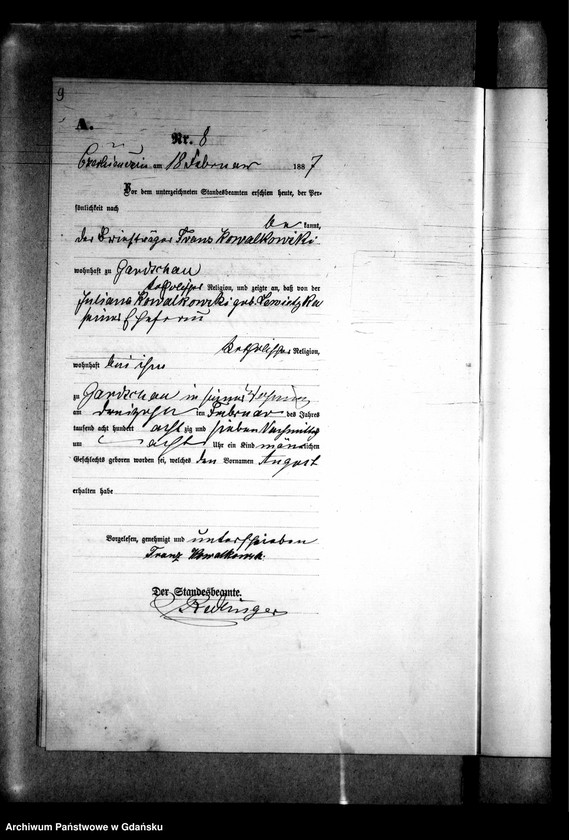 9
A.
Nr. 8
am 18 Februar 1887
Vor dem unterzeichneten Standesbeamten erschien heute, der Per-
sönlichkeit nach
be kannt,
der Briefträger Franz Kowalkowski
wohnhaft zu Gardschau
katholischer Religion, und zeigte an, daß von der
Juliana Kowalkowski geb.
seiner Ehefrau
katholischer Religion,
wohnhaft bei ihm
zu Gardschau in seiner Wohnung
am dreizehn ten Februar des Jahres
tausend acht hundert acht zig und sieben Nachmittag
um acht Uhr ein Kind männlichen
Geschlechts geboren worden sei, welches den Vornamen August
erhalten habe
Vorgelesen, genehmigt und unterschrieben
Franz Kowalkowski
Der Standesbeamte.
Archiwum Państwowe w Gdańsku